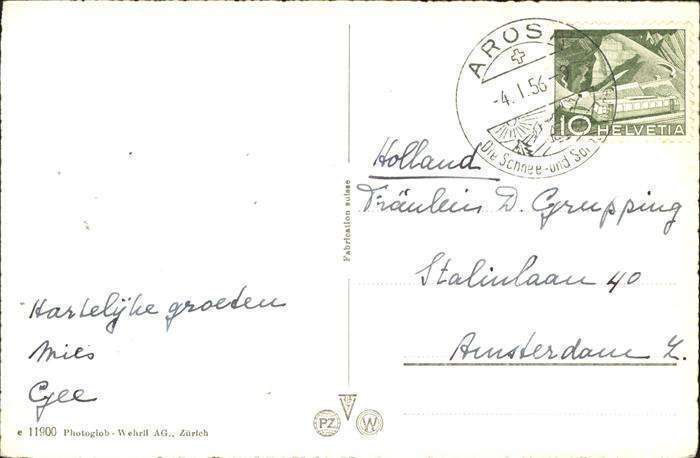 AROSA
-4.I.56-
Die Schnee-und
10 HELVETIA
Holland
Fräulein D. Grupping
Stalinlaan 40
Amsterdam Z.
Fabrication suisse
Hartelijke groeten
Mies
Gee
e 11900 Photoglob-Wehrli AG., Zürich
PZ W